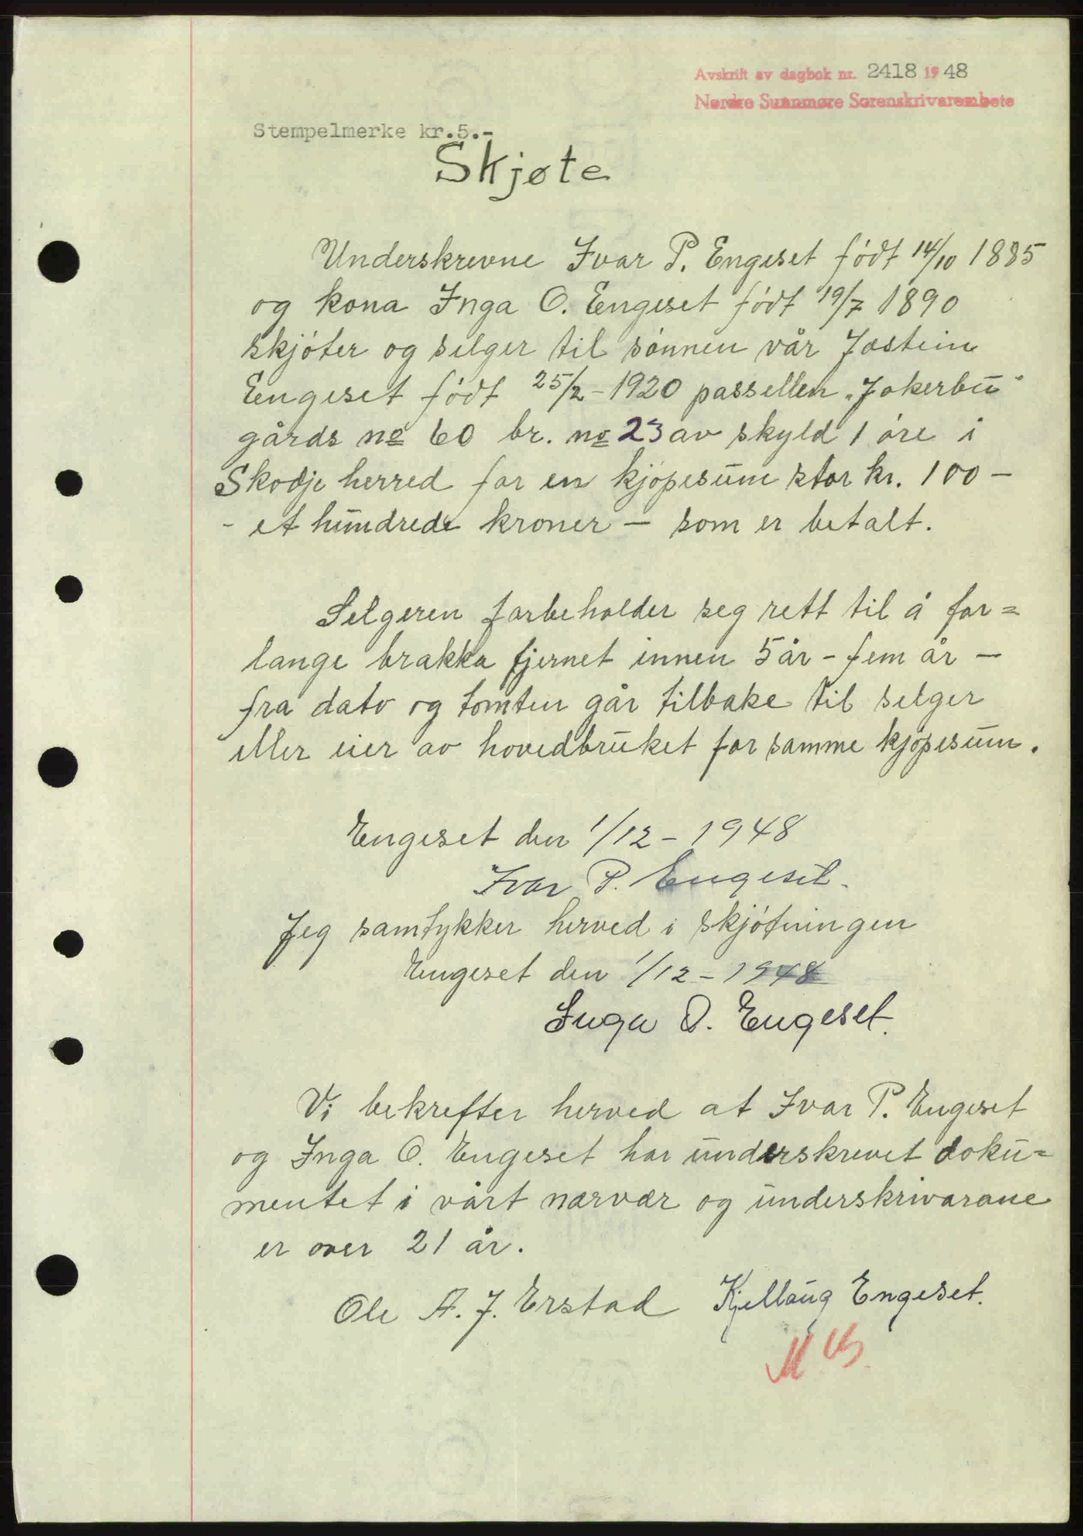 Avskrift av dagbok nr. 2418 1948
Nordre Sunnmøre Sorenskrivarembete
Stempelmerke kr.5.-
Skjøte
Underskrevne Ivar P. Engeset født 14/10 1885
og kona Inga O. Engeset født 19/7 1890
skjøter og selger til sønnen vår Jostein
Engeset født 25/2-1920 passellen "Jokerbu"
gårds no 60 br. no 23 av skyld 1 øre i
Skodje herred for en kjøpesum stor kr. 100 -
- et hundrede kroner - som er betalt.
Selgeren forbeholder seg rett til å for=
lange brakka fjernet innen 5 år - fem år -
fra dato og tomten går tilbake til selger
eller eier av hovedbruket for samme kjøpesum.
Engeset den 1/12 - 1948
Ivar P. Engeset.
Jeg samtykker herved i skjøtningen
Engeset den 1/12 - 1948
Inga O. Engeset.
Vi bekrefter herved at Ivar P. Engeset
og Inga O. Engeset har underskrevet doku=
mentet i vårt nærvær og underskrivarane
er over 21 år.
Ole A. J. Erstad Kjellaug Engeset.